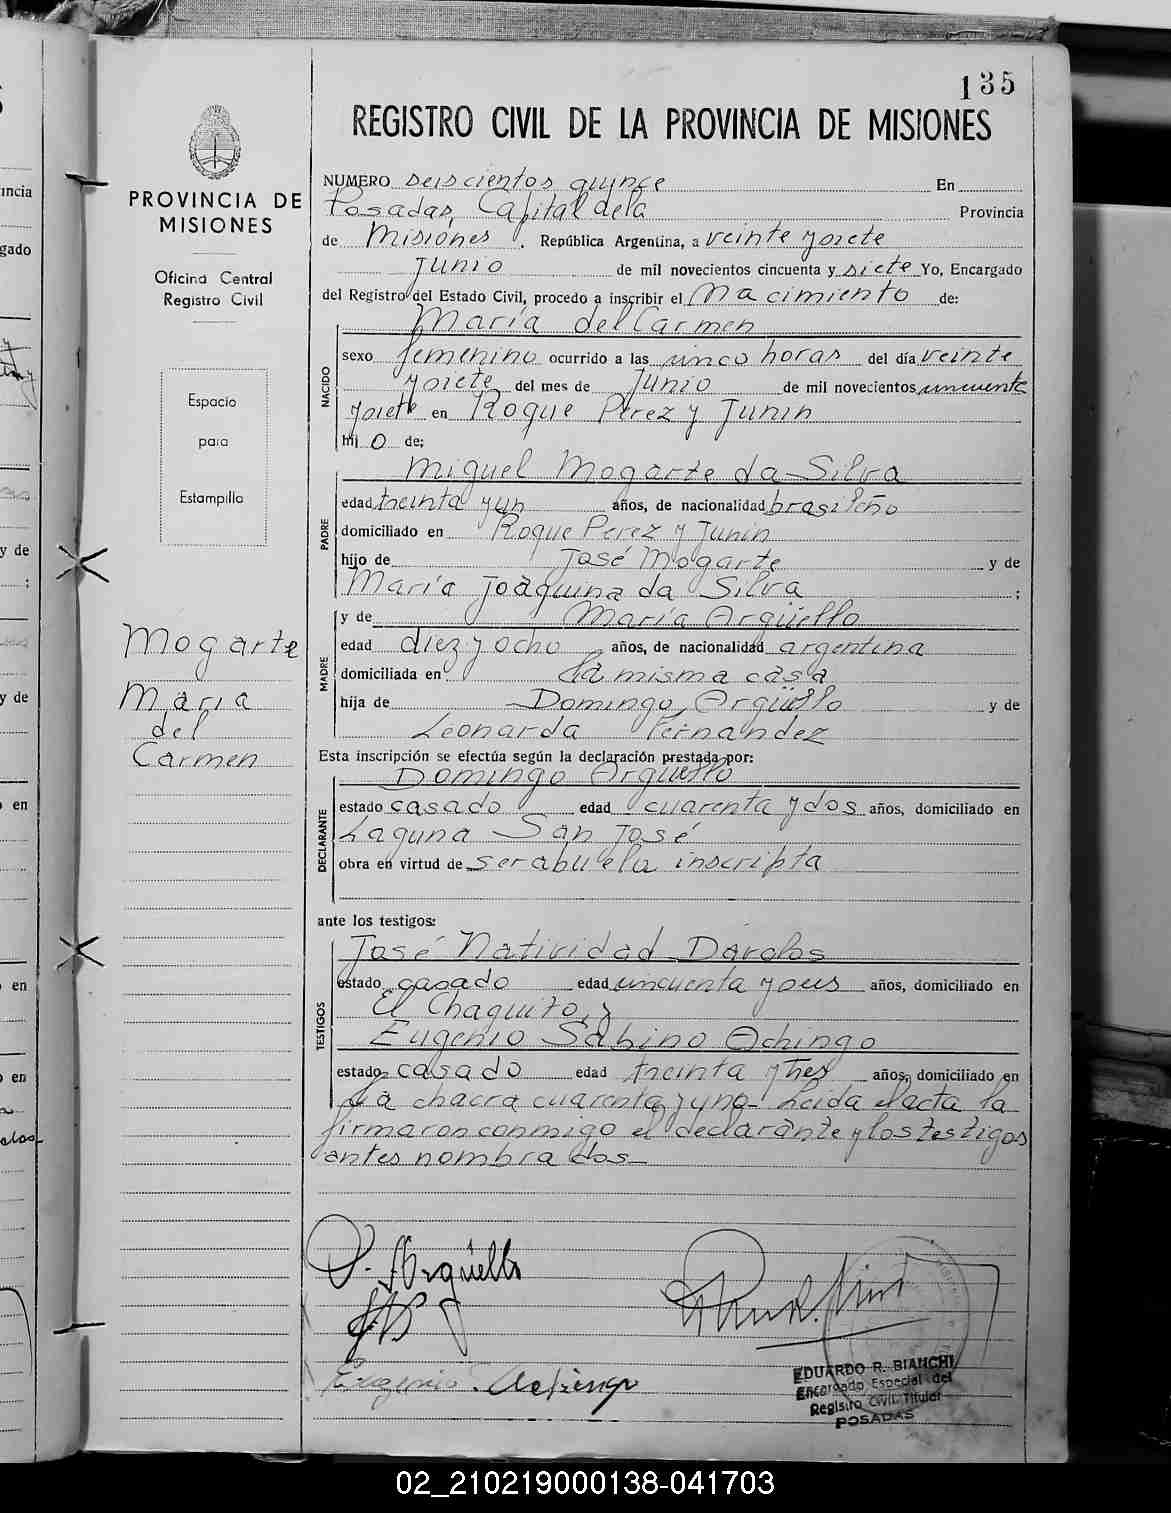 135
REGISTRO CIVIL DE LA PROVINCIA DE MISIONES
PROVINCIA DE
MISIONES
Oficina Central
Registro Civil
Espacio
para
Estampilla
Mogarte
María
del
Carmen
NUMERO seiscientos quince En
Posadas, Capital de la Provincia
de Misiones, República Argentina, a veinte y siete
Junio de mil novecientos cincuenta y siete Yo, Encargado
del Registro del Estado Civil, procedo a inscribir el Nacimiento de:
María del Carmen
NACIDO
sexo femenino ocurrido a las cinco horas del día veinte
y siete del mes de Junio de mil novecientos cincuenta
y siete en Roque Perez y Junin
hij o de;
Miguel Mogarte da Silva
PADRE
edad treinta y un años, de nacionalidad brasileño
domiciliado en Roque Perez y Junin
hijo de José Mogarte y de
María Joaquina da Silva ;
y de María Argüello
MADRE
edad diez y ocho años, de nacionalidad argentina
domiciliada en la misma casa
hija de Domingo Argüello y de
Leonarda Fernandez
Esta inscripción se efectúa según la declaración prestada por:
Domingo Argüello
DECLARANTE
estado casado edad cuarenta y dos años, domiciliado en
Laguna San José
obra en virtud de ser abuelo inscripta
ante los testigos:
José Natividad Dávalos
TESTIGOS
estado casado edad cincuenta y años, domiciliado en
El Chaquito, y
Eugenio Sabino Achingo
estado casado edad treinta y tres años, domiciliado en
la chacra cuarenta y una- Leida el acta la
firmaron conmigo el declarante y los testigos
antes nombrados-
D. Argüello
Eugenio Achingo
EDUARDO R. BIANCHI
Encargado Especial del
Registro Civil Titular
POSADAS
02_210219000138-041703